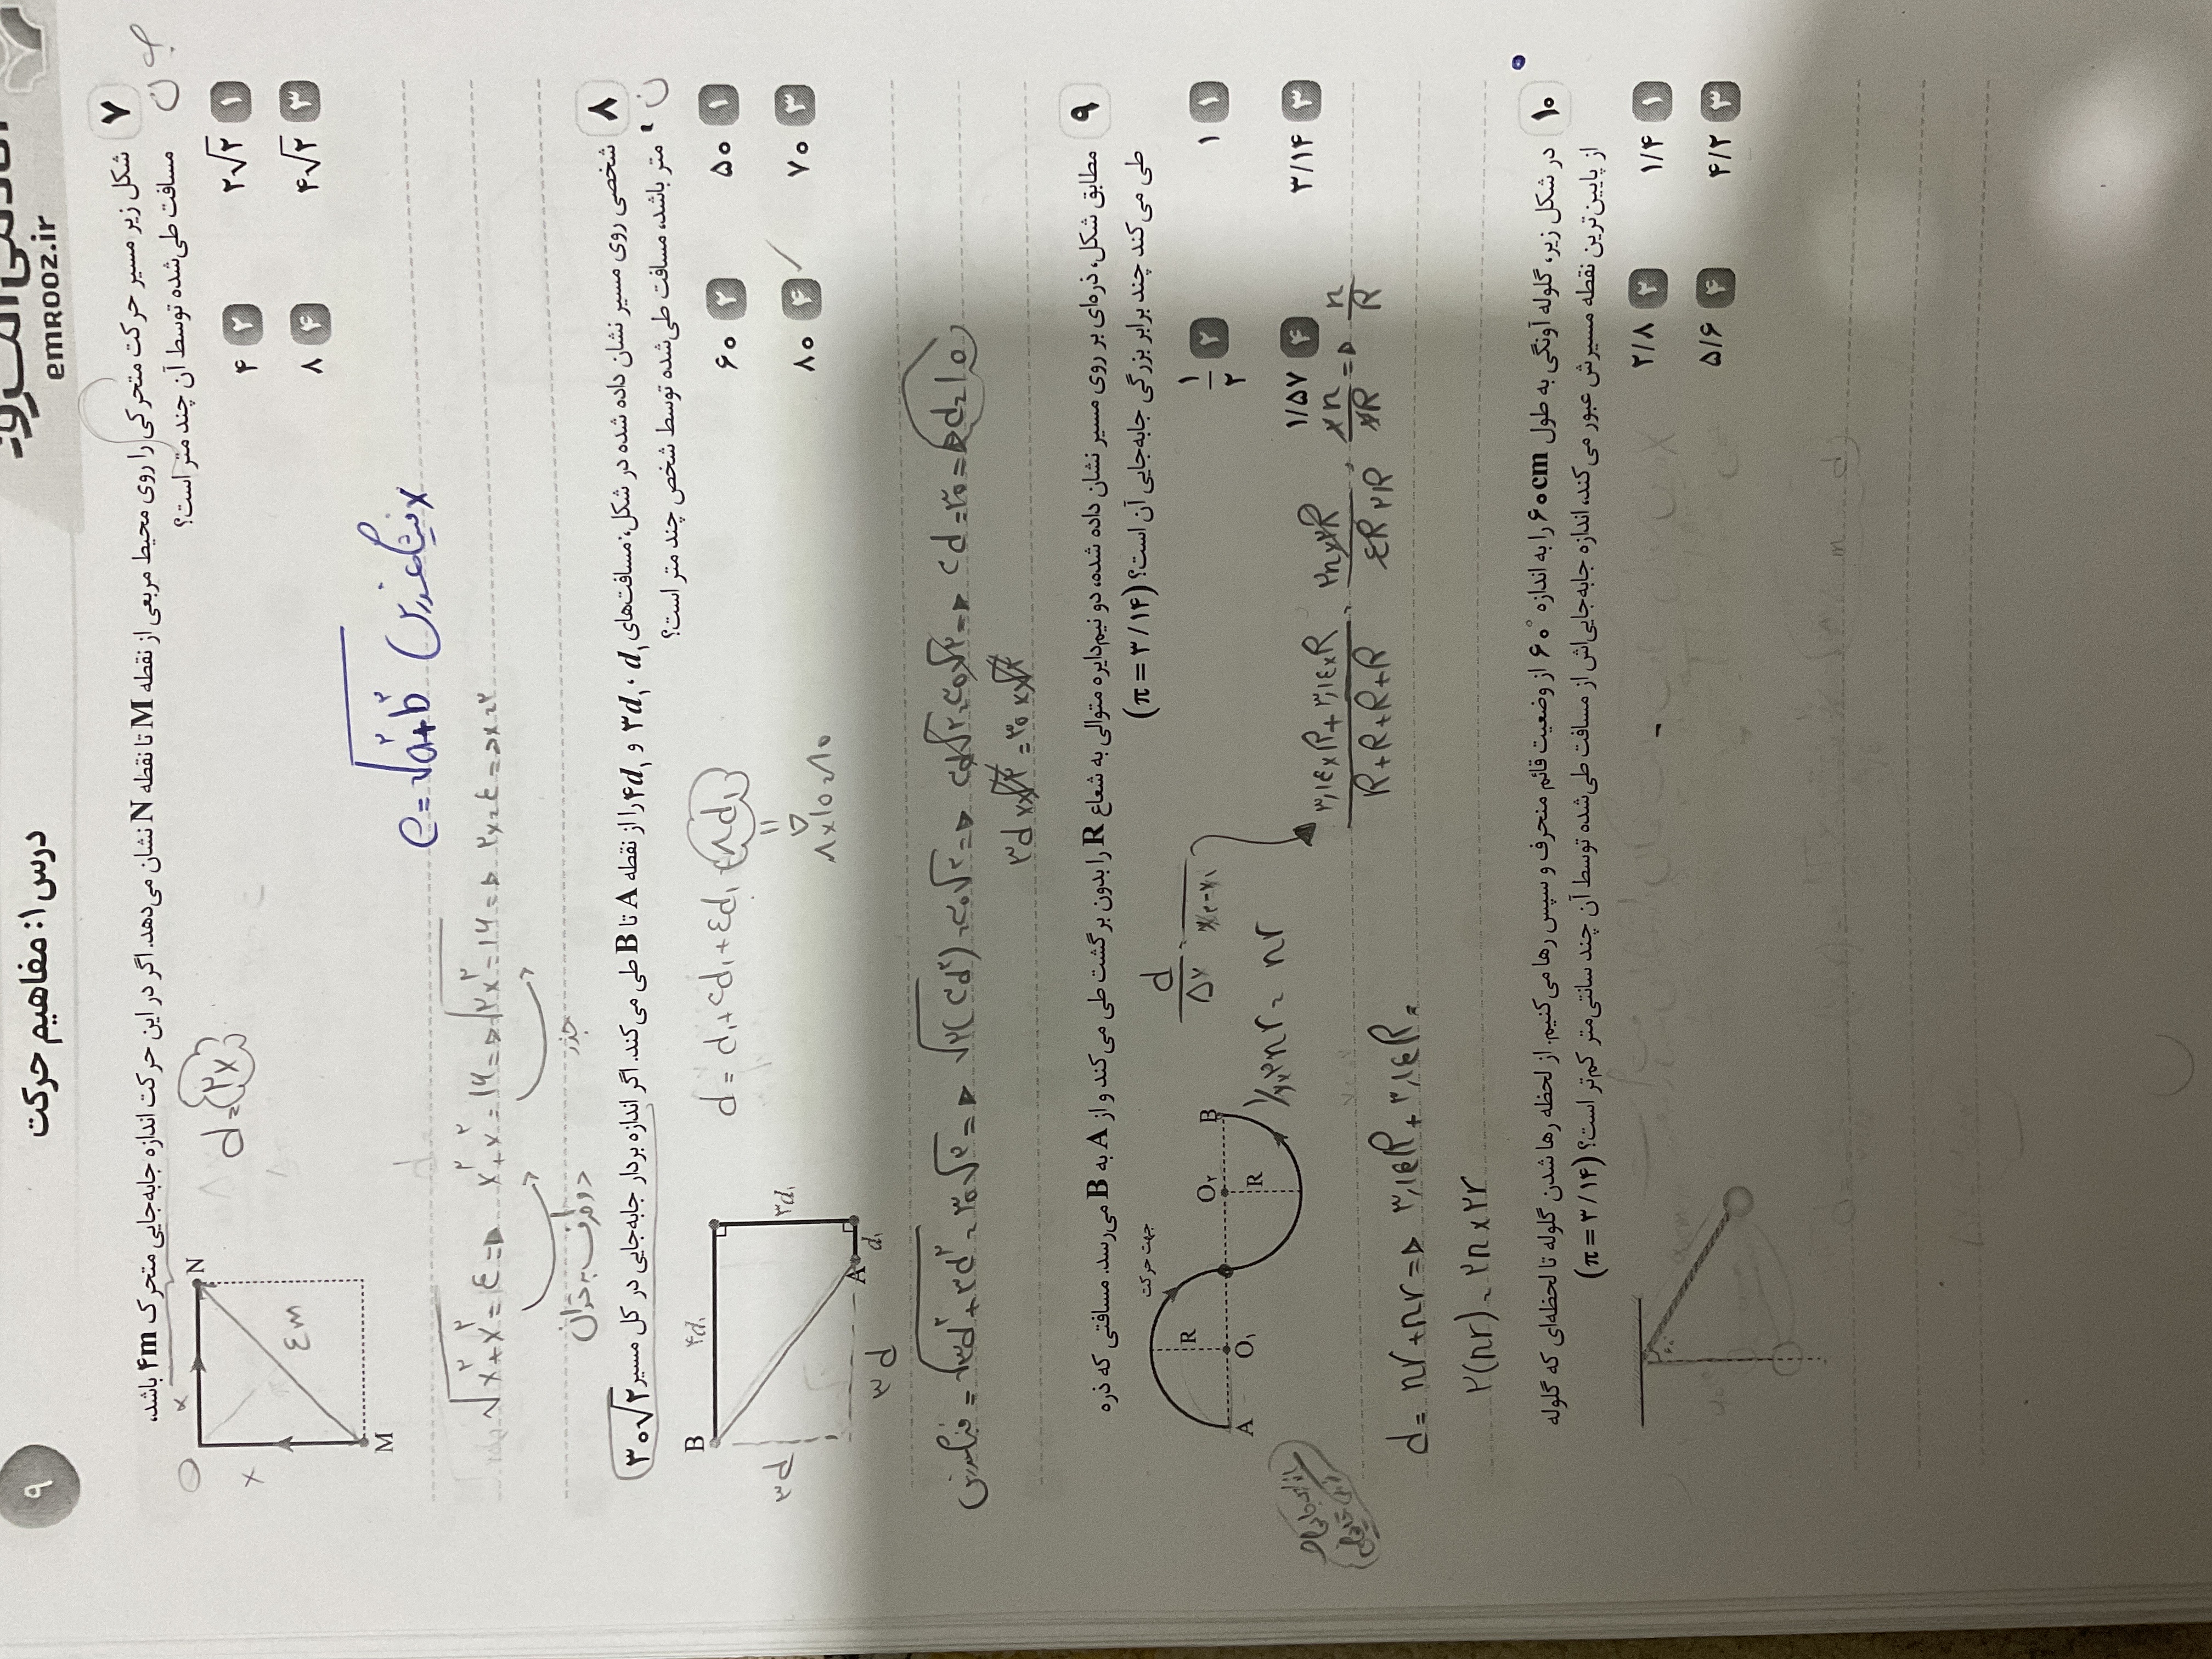 ۹
درس ۱: مفاهیم حرکت
emrooz.ir
۷ شکل زیر مسیر حرکت متحرکی را روی محیط مربعی از نقطه M تا نقطه N نشان می‌دهد. اگر در این حرکت اندازه جابه‌جایی متحرک ۴m باشد،
مسافت طی‌شده توسط آن چند متر است؟
۱ ۲√۲
۲ ۴
۳ ۴√۲
۴ ۸
N
M
x
x
۴m
d = ۲x
e = √a²+b²
فیثاغورس
√x²+x² = ۴ ⇒ x²+x² = ۱۶ ⇒ √۲x² = ۱۶ ⇒
جذر
۸ شخصی روی مسیر نشان داده شده در شکل، مسافت‌های d₁، ۳d₁ و ۴d₁ را از نقطه A تا B طی می‌کند. اگر اندازه بردار جابه‌جایی در کل مسیر ۳۰√۲
متر باشد، مسافت طی‌شده توسط شخص چند متر است؟
۱ ۵۰
۲ ۶۰
۳ ۷۰
۴ ۸۰
B
۴d₁
۳d₁
d₁
A
۳d
۳d
d = d₁+۳d₁+۴d₁ = ۸d₁
۸×۱۰=۸۰
۹ مطابق شکل، ذره‌ای بر روی مسیر نشان داده شده، دو نیم‌دایره متوالی به شعاع R را بدون برگشت طی می‌کند و از A به B می‌رسد. مسافتی که ذره
طی می‌کند چند برابر بزرگی جابه‌جایی آن است؟ (π = ۳/۱۴)
۱ ۱
۲ ۱/۲
۳ ۳/۱۴
۴ ۱/۵۷
جهت حرکت
R
O₁
O₂
R
A
B
d/Δx
d = πr + πr ⇒ ۳,۱۴R + ۳,۱۴R
۲(πr) = ۲π×۲r
۳,۱۴×R+۳,۱۴×R
R+R+R+R
۱۰ در شکل زیر، گلوله آونگی به طول ۶۰cm را به اندازه ۶۰° از وضعیت قائم منحرف و سپس رها می‌کنیم. از لحظه رها شدن گلوله تا لحظه‌ای که گلوله
از پایین‌ترین نقطه مسیرش عبور می‌کند، اندازه جابه‌جایی‌اش از مسافت طی‌شده توسط آن چند سانتی‌متر کم‌تر است؟ (π = ۳/۱۴)
۱ ۱/۴
۲ ۲/۸
۳ ۴/۲
۴ ۵/۶